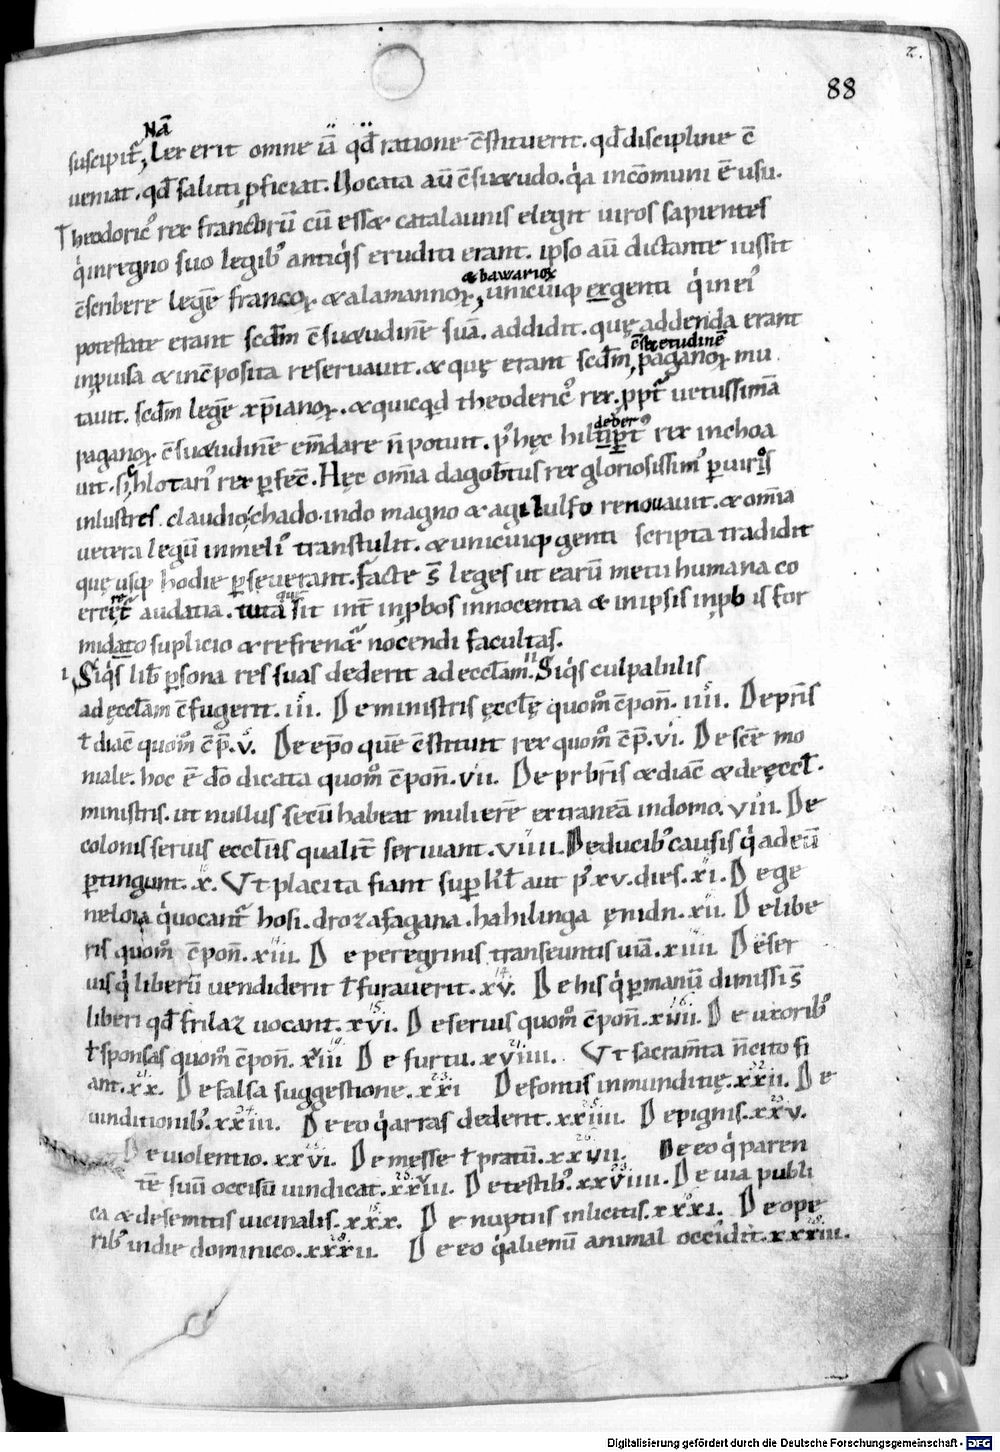 2.
88
Nā
suscipit̄, Lex erit omne iā qd̄ ratione c̄stituerit. qd̄ discipline c̄
ueniat. qd̄ saluti ꝓficiat. Uocata aū c̄suetudo. q̓a in c̄omuni ē usu.
Theodoric᾿ rex francorū cū esset catalaunis elegit uiros sapientes
q̓ in regno suo legib᾿ antiq̓s eruditi erant. ipso aū dictante iussit
& bawarioꝝ
c̄scribere legē francoꝝ & alamannoꝝ, unicuiq; genti q̓ in ei᾿
potestate erant scd̄m c̄suetudinē suā. addidit. quę addenda erant
c̄suetudinē
inꝓuisa & inc̄posita reseruauit. & quę erant scd̄m, paganoꝝ mu
tauit. scd̄m legē xp̄ianoꝝ. & quicqd theoderic᾿ rex. ꝓpt̄ uetussimā
paganoꝝ c̄suetudinē em̄dare n̄ potuit. p᾿ hęc hil deber᾿ rex inchoa
uit. s; hlotari᾿ rex ꝑfec̄. Hęc om̄ia dagob̄tus rex gloriosissim᾿ ꝑ uiros
inlustres. claudio, chado. indo magno & agilulfo renouauit. & om̄ia
uetera legū in meli᾿ transtulit. & unicuiq; genti scripta tradidit
quę usq; hodie ꝑseuerant. facte s̄ leges ut earū metu humana co
ercęt̄ audatia. tutaq; sit int̄ inꝓbos innocentia & in ipsis inꝓbis for
midato suplicio & refrenet̄ nocendi facultas.
1 Siq̓s lib̄ ꝑsona res suas dederit ad eccl̄am. II Siq̓s culpabilis
ad ęccl̄am c̄fugerit. iii. De ministris ęccl̄ę quom̊ c̄pon̄. iiii. De pr̄is
ł diac̄ quom̊ c̄p̄. v. De ep̄o quē c̄stituit rex quom̊ c̄p̄. vi. De sc̄e mo
niale. hoc ē do dicata quom̊ c̄pon̄. vii. De prb̄ris & diac̄ & de ęccl̄.
ministris. ut nullus secū habeat mulierē extraneā in domo. viii. De
colonis seruis eccl̄iis qualit̄ seruiant. viiii. De ducib᾿ causis q̓ ad eū
ꝑtingunt. x. Ut placita fiant suꝑ kł aut p᾿ xv. dies. xi. De ge
neloia q̓ uocant̄ hosi. droza fagana. hahilinga ęnidn. xii. De libe
ris quom̊ c̄pon̄. xiii. De peregrinis transeuntis uiā. xiiii. De ser
uis q̓ liberū uendiderit ł furauerit. xv. De his q̓ ꝑ manū dimissi s̄
liberi qd̄ frilaz uocant. xvi. De seruis quom̊ c̄pon̄. xvii. De uxorib᾿
ł sponsas quom̊ c̄pon̄. xviii De furtu. xviiii. Ut sacram̄ta n̄ cito fi
ant. xx. De falsa suggestione. xxi De fontis inmunditię. xxii. De
uinditionib᾿. xxiii. De eo q̓ arras dederit. xxiiii. De pignis. xxv.
De uiolentio. xxvi. De messe ł pratū. xxvii. De eo q̓ paren
tē suū occisū uindicat. xxviii. De testib᾿. xxviiii. De uia publi
ca & de semitis uicinalis. xxx. De nuptiis inlicitis. xxxi. De ope
rib᾿ in die dominico. xxxii. De eo q̓ alienū animal occidit. xxxiii.
Digitalisierung gefördert durch die Deutsche Forschungsgemeinschaft - DFG